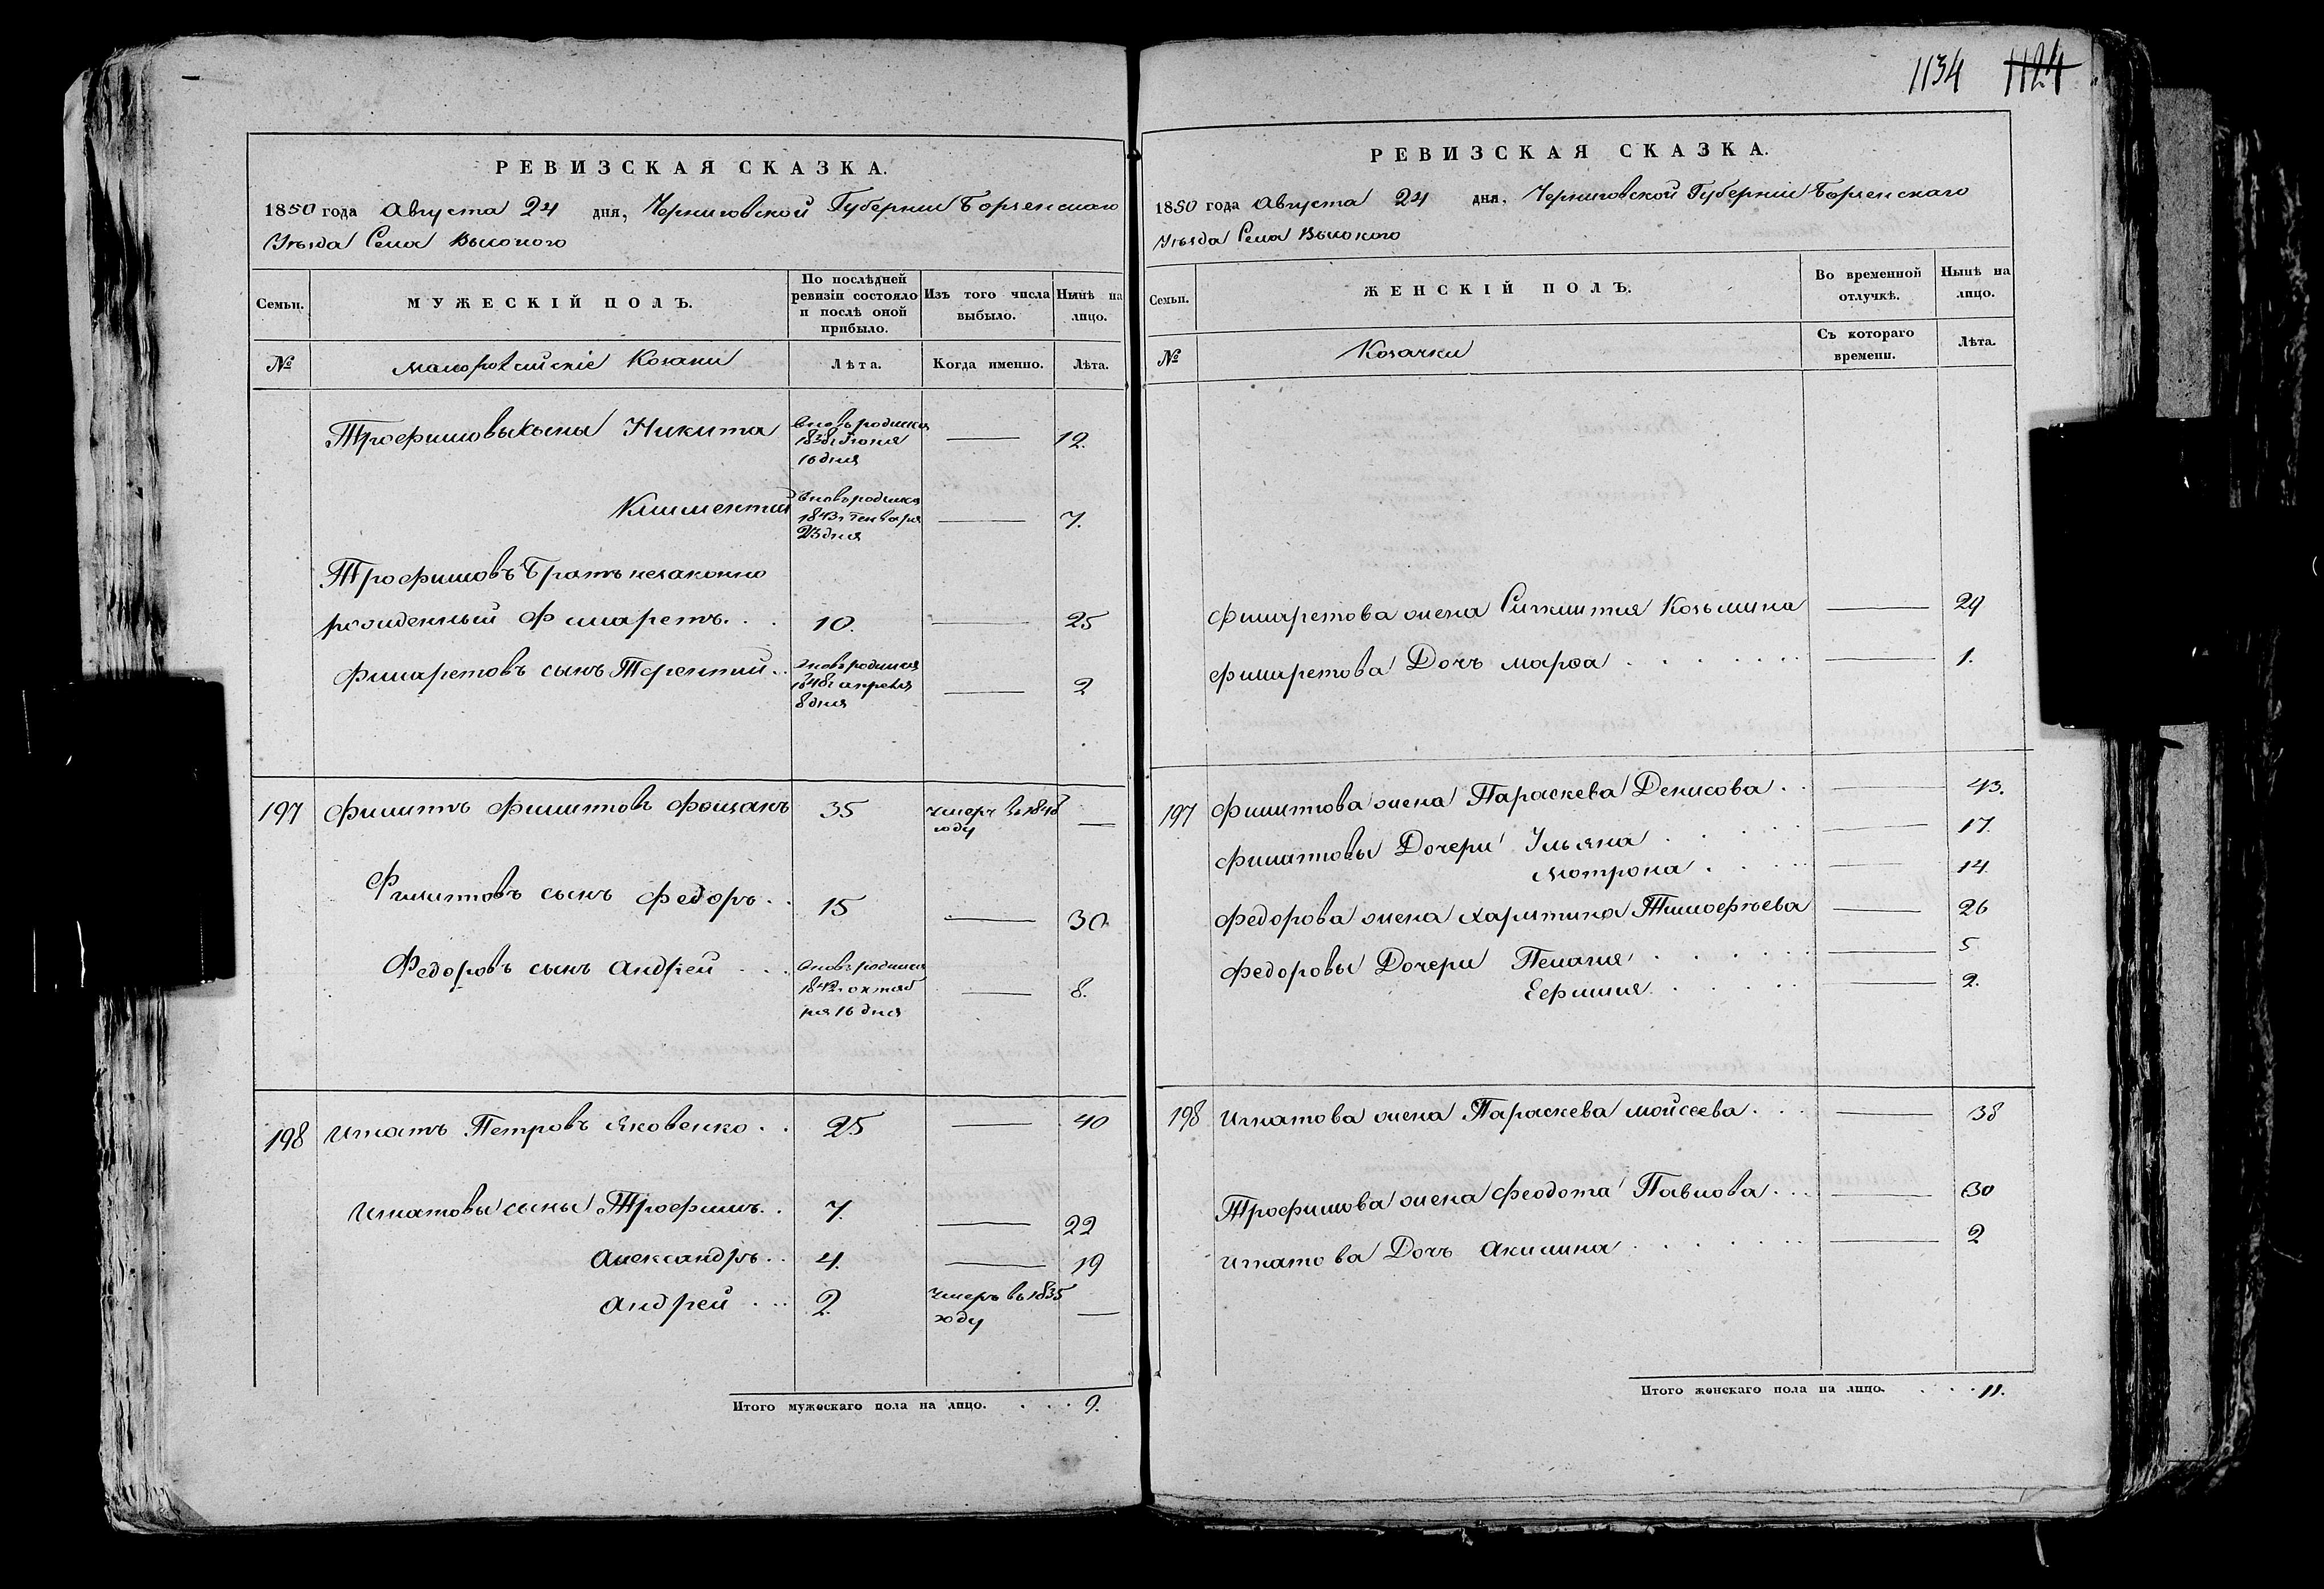 1134 1124
РЕВИЗСКАЯ СКАЗКА.
1850 года Августа 24 дня, Черниговской Губернии Борзенскаго
Уѣзда Села Высокого
Семьи.
МУЖЕСКІЙ ПОЛЪ.
По послѣдней ревизіи состояло и послѣ оной прибыло.
Изъ того числа выбыло.
Нынѣ на лицо.
№
Малороссійскіе Козаки
Лѣта.
Когда именно.
Лѣта.
Трофимовы сыны Никита вновь родился 1838 г Іюня 16 дня — 12.
Климентий вновь родился 1843 г Генваря 23 дня — 7.
Трофимовъ Братъ незаконно
рожденный Филаретъ . . 10. — 25
Филаретовъ сынъ Терентий . . вновь родился 1848 г апреля 8 дня — 2
197 Филиппъ Филипповъ Фощанъ 35 умеръ въ 1848 году —
Филипповъ сынъ Федоръ . . 15 — 30
Федоровъ сынъ Андрей . . . вновь родился 1842 г октяб ря 16 дня — 8.
198 Игнатъ Петровъ Яковенко . . 25 — 40
Игнатовы сыны Трофимъ . . 7. — 22
Александръ . . 4. — 19
Андрей . . . 2. умеръ въ 1835 году —
Итого мужескаго пола на лицо. . . . 9.
РЕВИЗСКАЯ СКАЗКА.
1850 года Августа 24 дня, Черниговской Губернии Борзенскаго
Уѣзда Села Высокого
Семьи.
ЖЕНСКІЙ ПОЛЪ.
Во временной отлучкѣ.
Нынѣ на лицо.
№
Козачки
Съ котораго времени.
Лѣта.
Филаретова жена Козьмина — 29
Филаретова Дочь Марфа . . . . . . . — 1.
197 Филиппова жена Параскева Денисова . . — 43.
Филипповы Дочери Ульяна . . . . . — 17.
Мотрона . . . . . — 14.
Федорова жена Харитина Тимофѣева — 26
Федоровы Дочери Пелагия . . . . . . — 5
Ефимия . . . . . — 2.
198 Игнатова жена Параскева Мойсеева . . . — 38
Трофимова жена Феодота Павлова . . . — 30
Игнатова Дочь Акилина . . . . . . . — 2
Итого женскаго пола на лицо. . . . 11.